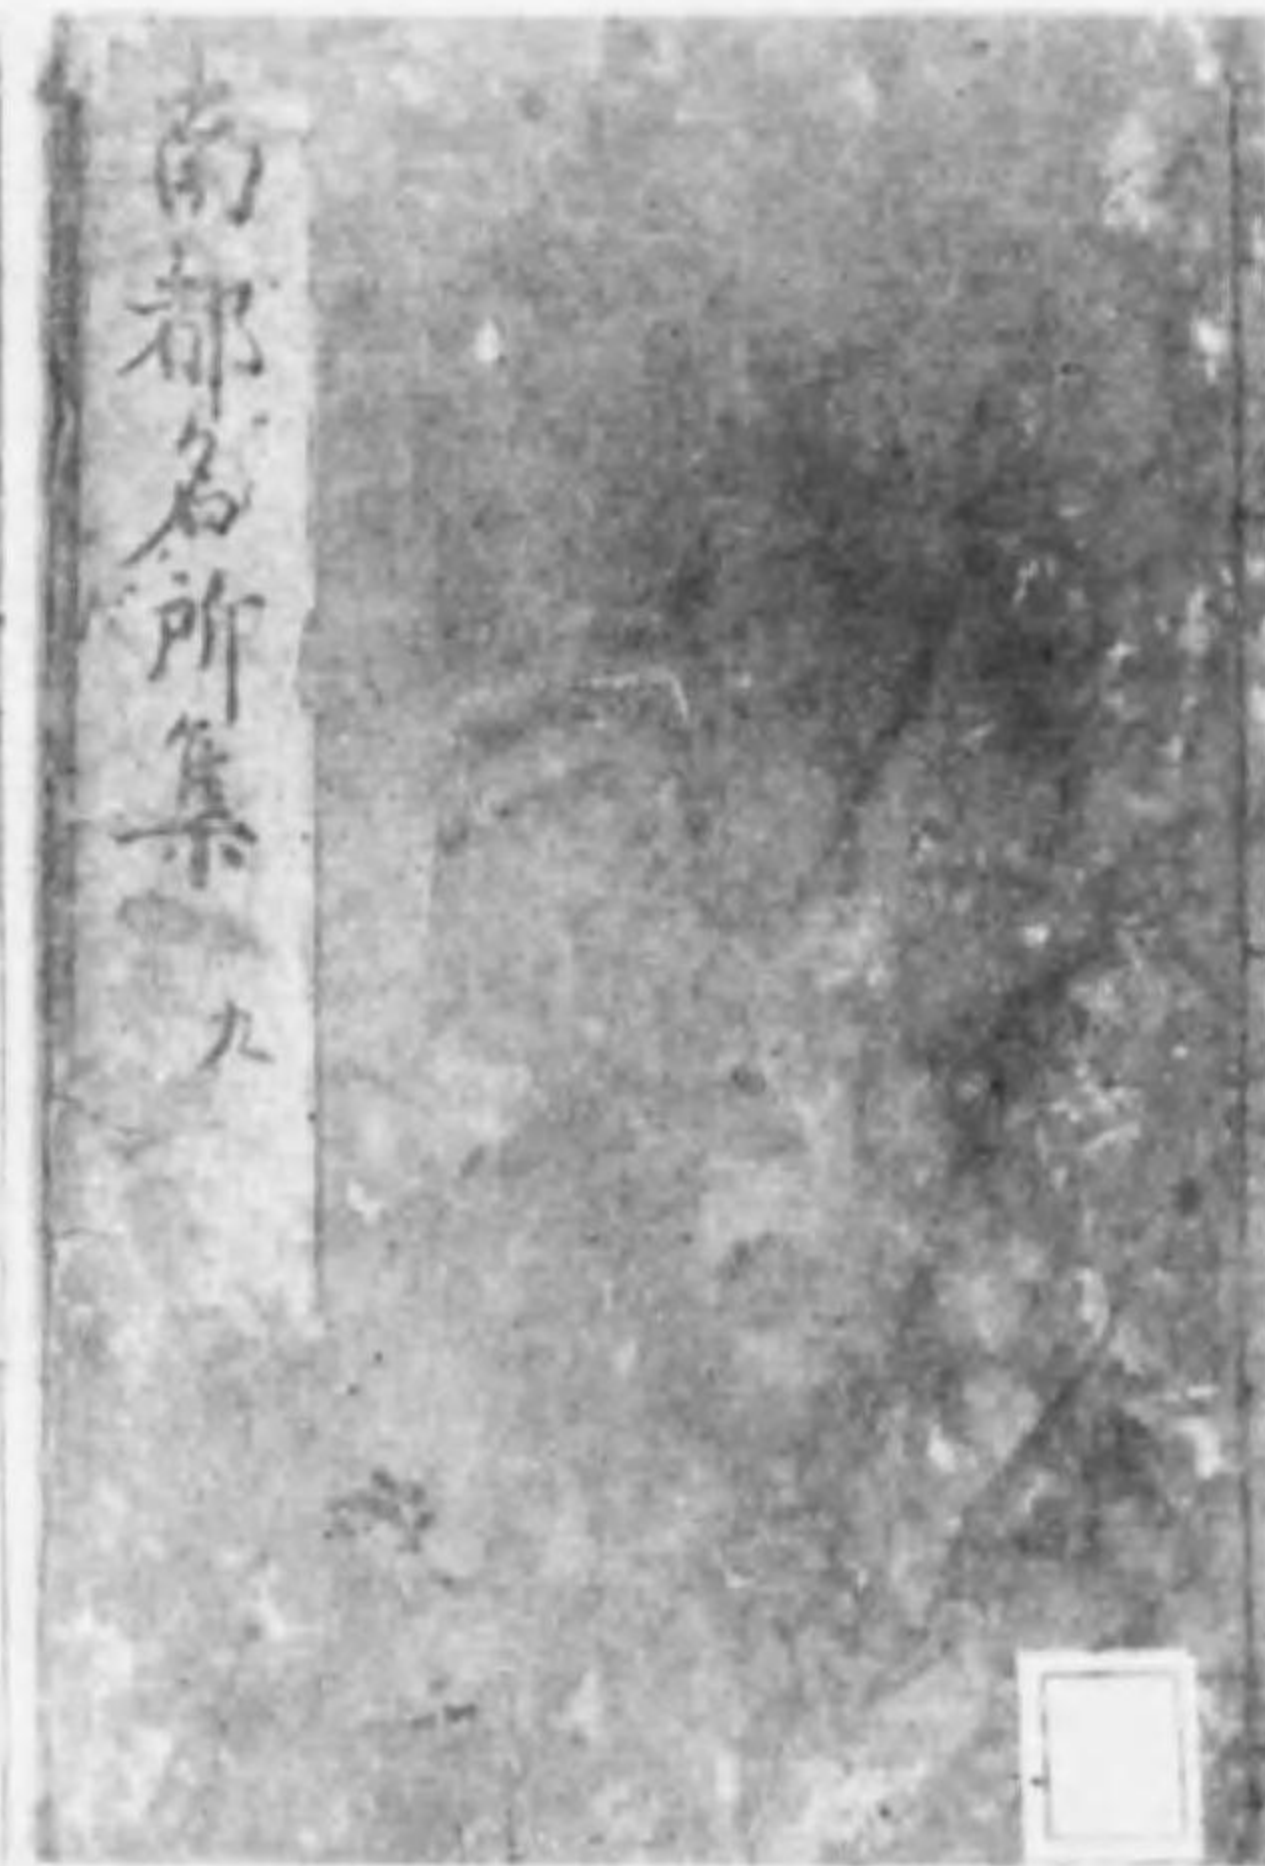 南都名所集 九